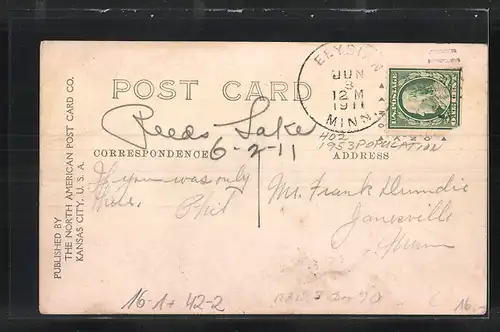 POST CARD
ELYSIAN
JUN
3
12 M
1911
MINN.
U.S. POSTAGE
Reeds Lake
6-2-11
402
1953 POPULATION
CORRESPONDENCE
ADDRESS
If you was only
here.
Phil
Mr. Frank Dumdie
Janesville
Minn
PUBLISHED BY
THE NORTH AMERICAN POST CARD CO.
KANSAS CITY, U. S. A.
16-1+ 42-2
16